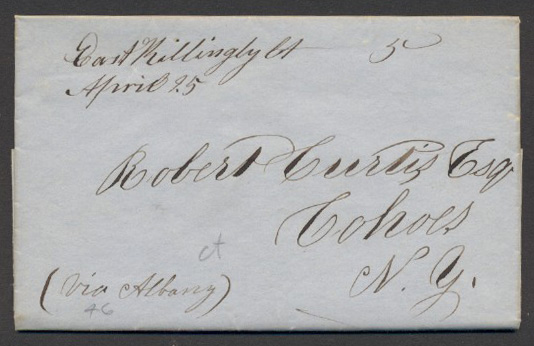 East Killingly Ct 5
April 25
Robert Curtis Esq
Cohoes
N. Y.
ct
(via Albany)
46